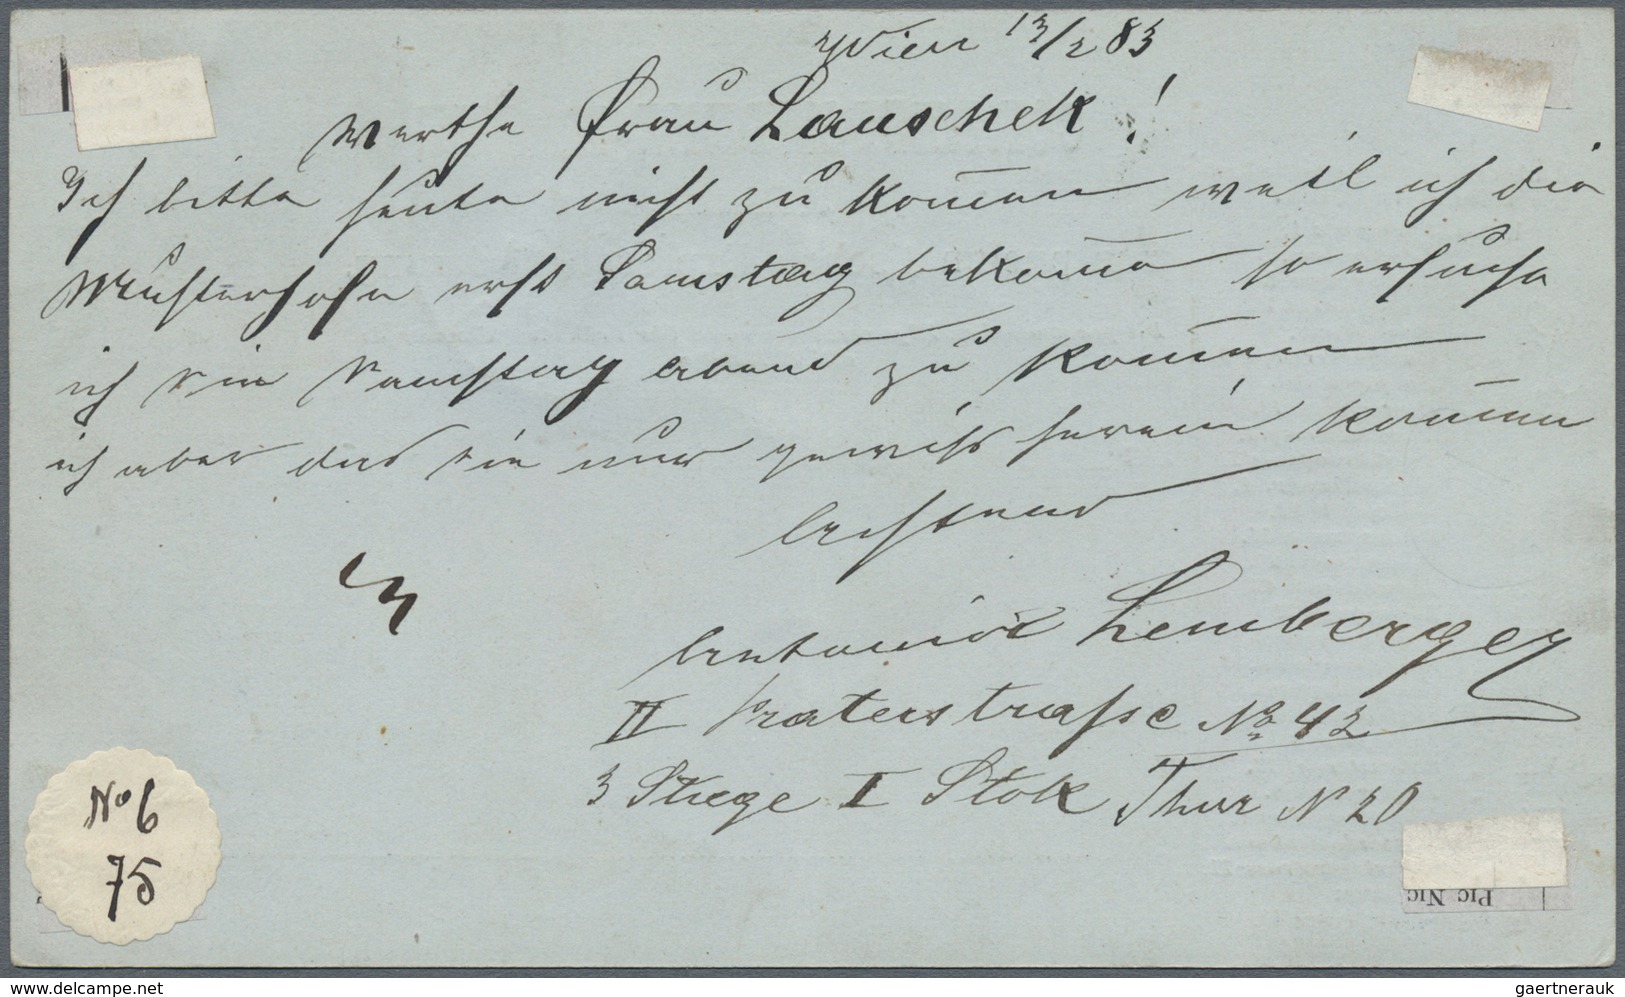 Wien 13/2 83
Werthe Frau Lauschek!
Ich bitte heute nicht zu kom̅en weil ich die
erst Samstag bekom̅e so ersuche
ich sie Samstag abend zu kom̅en
ich aber das sie nur gewiß herein kom̅en
Achtend
Antonia Lemberger
II Praterstraße No 42
3 Stiege I Stok Thur N 20
No 6
75
Pic Nic
www.delcampe.net
gaertnerauk